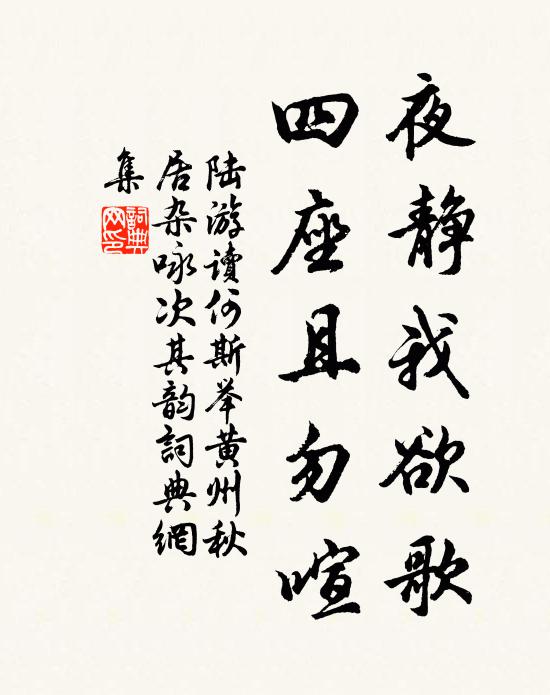 夜静我欲歌
四座且勿喧
陆游讀何斯举黄州秋
居杂咏次其韵詞典網
集
詞典
网印